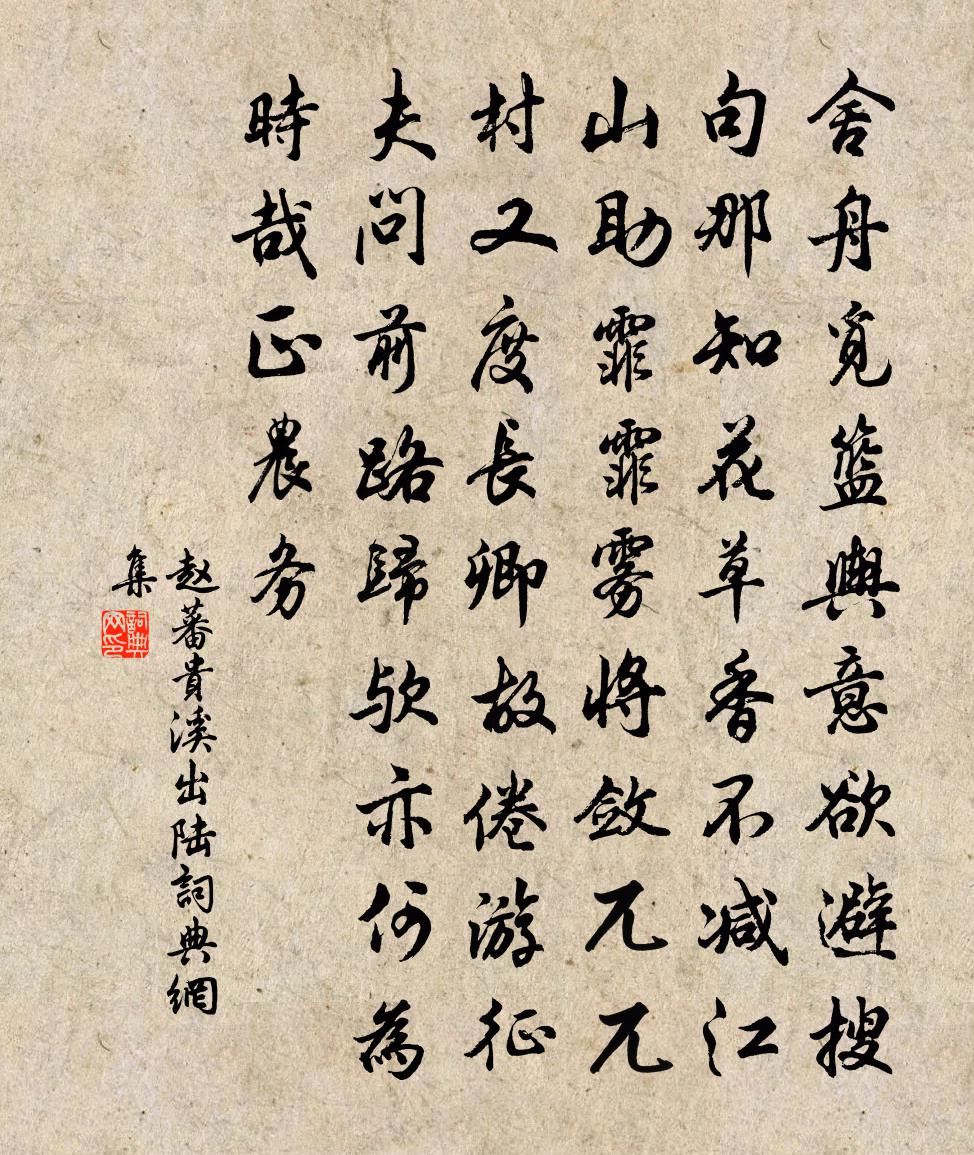 舍舟覓籃輿意欲避搜
句那知花草香不減江
山助霏霏雾將斂兀兀
村又度長卿故倦游征
夫問前路歸歟亦何為
時哉正農务
赵蕃貴溪出陆詞典網
集
詞典网印